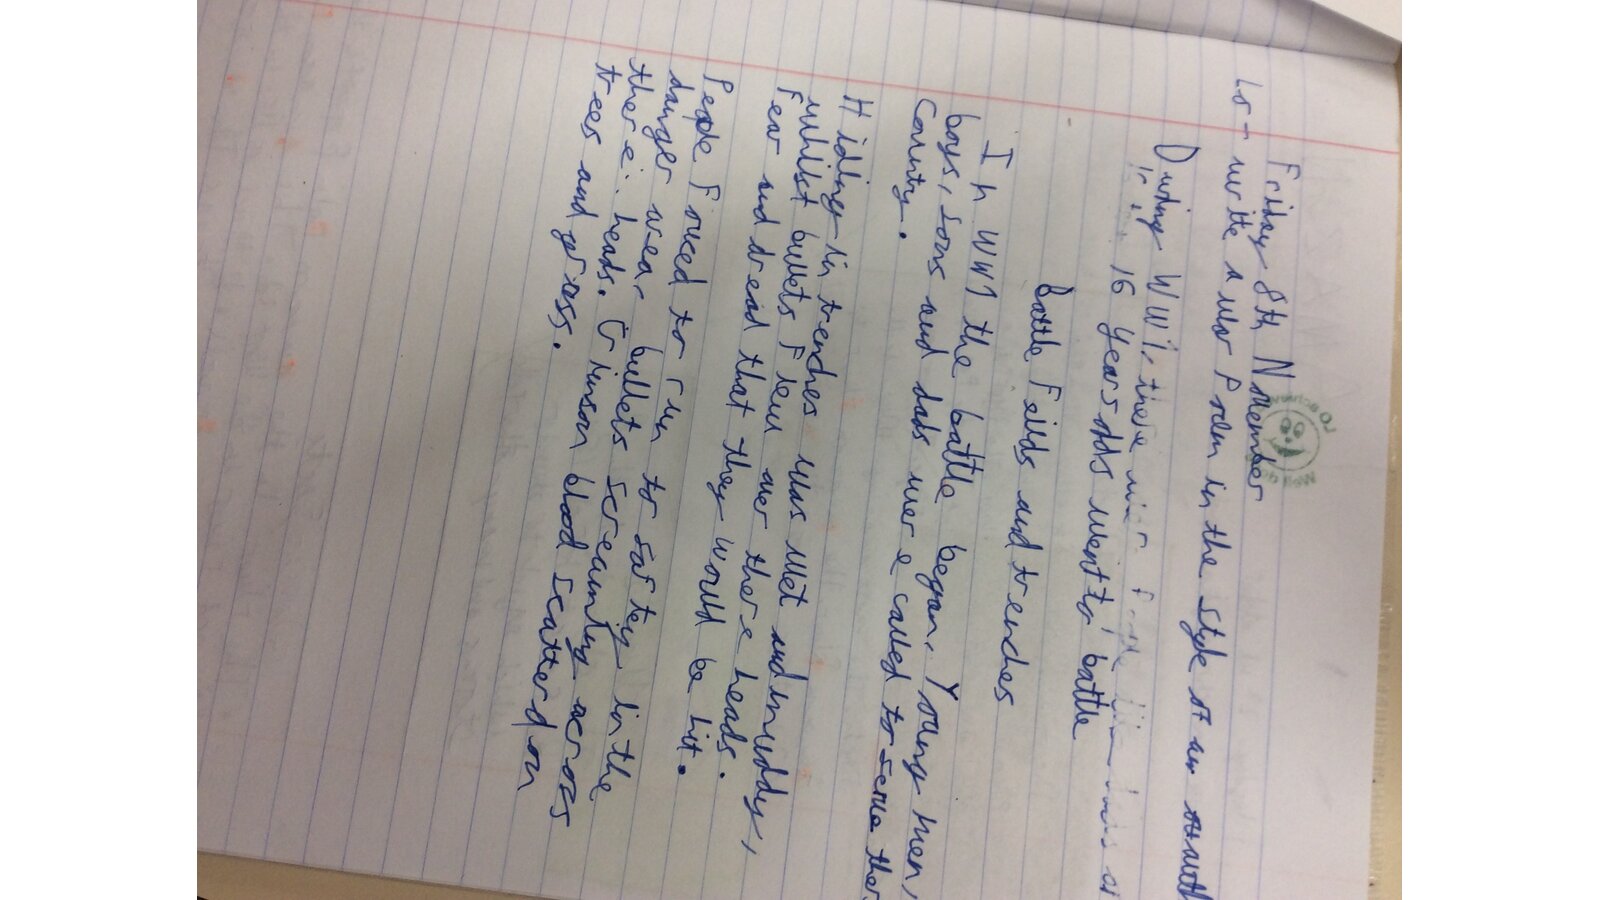 Friday 8th November
Lo - write a war Poem in the style of an
During WW1, there
16 years olds went to battle
Battle Feilds and trenches
In WW1 the battle began, Young men,
boys, sons and dads were called to serve ther
Country.
Hiding in trenches was wet and muddy,
whilst bullets Flew over there heads.
Fear and dread that they would be hit.
People Forced to run to saftey in the
danger wear bullets screaming across
there heads. Crimson blood scatterd on
trees and grass.